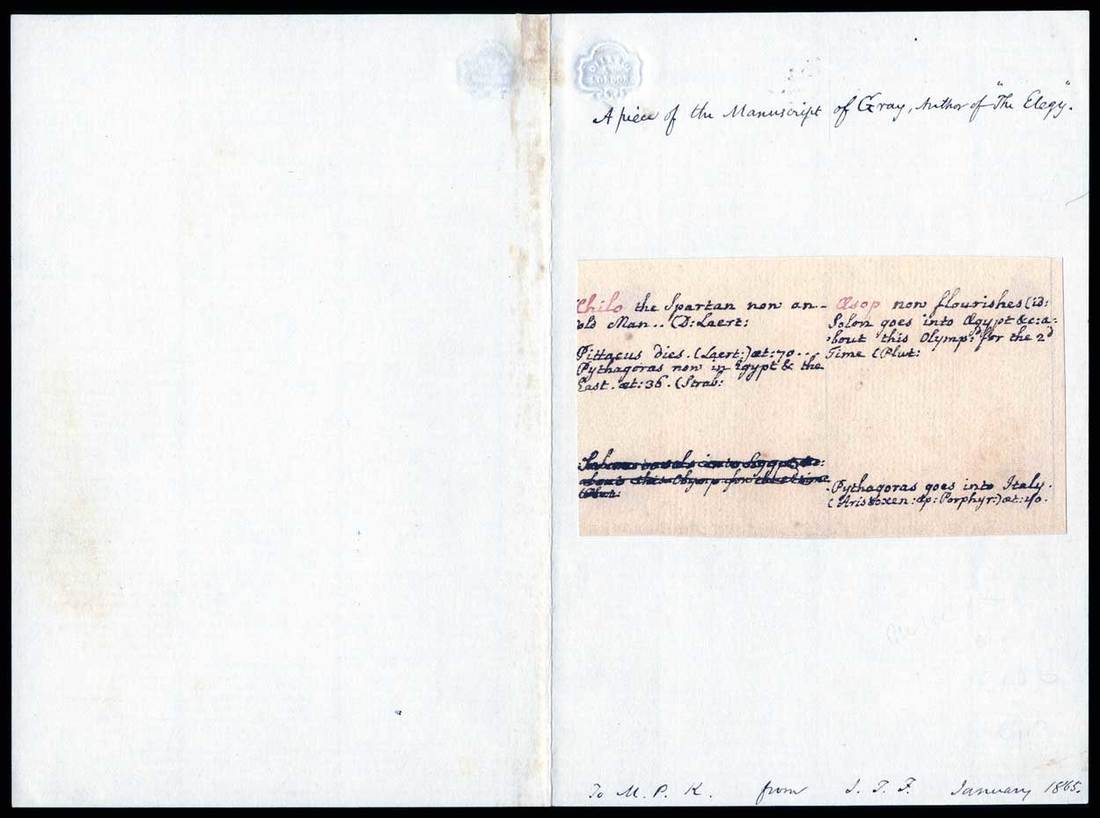 A piece of the Manuscript of Gray, Author of "The Elegy".
LONDON
Chilo the Spartan now an
old Man.. (D: Laert:
Pittacus dies. (Laert:) æt: 70..
Pythagoras now in Egypt & the
East. æt: 36. (Strab:
Æsop now flourishes (id:
Solon goes into Ægypt &c: a-
bout this Olymp:d for the 2d
Time (Plut:
about this Olymp for the 2d time
Plut:
Pythagoras goes into Italy.
(Aristoxen: ap: Porphyr:) æt: 40.
To M. P. K. from J. T. F. January 1865.